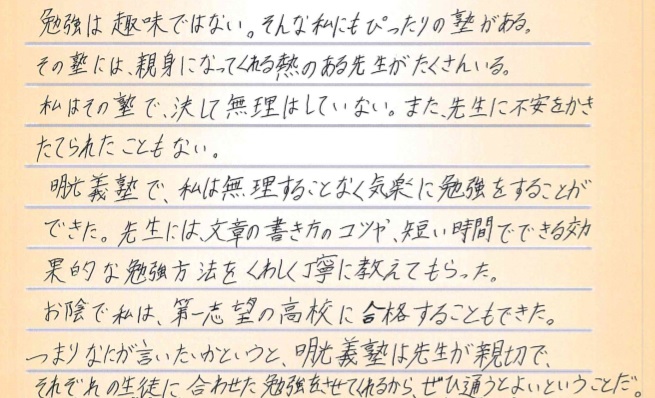 勉強は趣味ではない。そんな私にもぴったりの塾がある。
その塾には、親身になってくれる熱のある先生がたくさんいる。
私はその塾で、決して無理はしていない。また、先生に不安をかき
たてられたこともない。
明光義塾で、私は無理することなく気楽に勉強をすることが
できた。先生には、文章の書き方のコツや、短い時間でできる効
果的な勉強方法をくわしく丁寧に教えてもらった。
お陰で私は、第一志望の高校に合格することもできた。
つまりなにが言いたいかというと、明光義塾は先生が親切で、
それぞれの生徒に合わせた勉強をさせてくれるから、ぜひ通うとよいということだ。